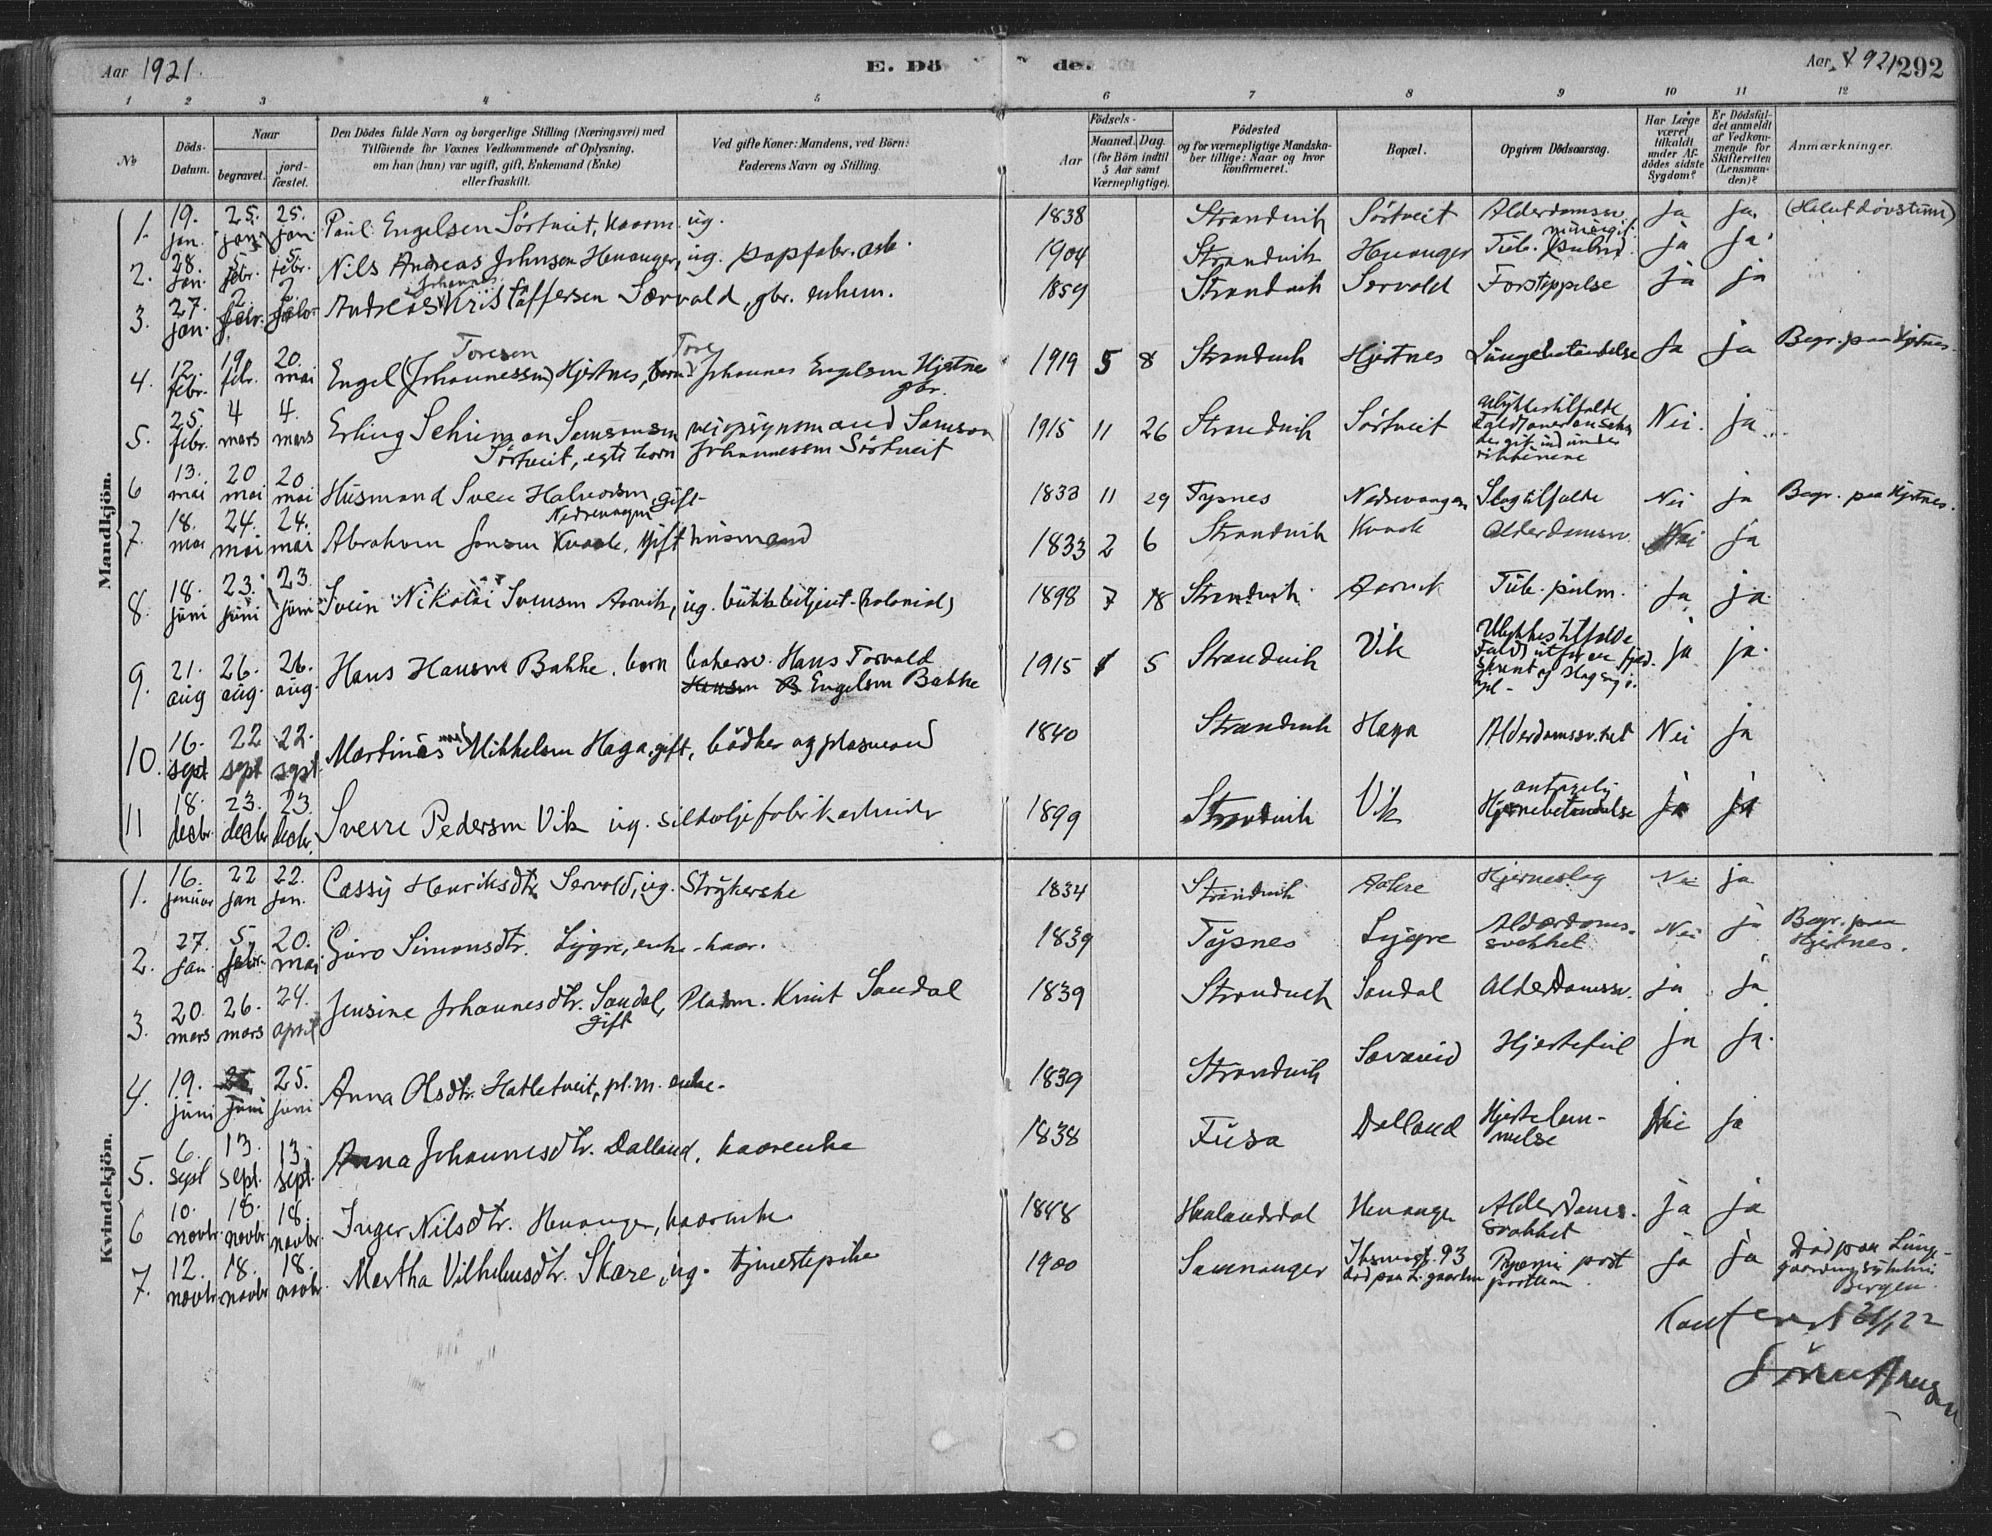 Aar 1921.
E. Dö de.
Aar 1921 292
1 2 3 4 5 6 7 8 9 10 11 12
No
Döds-Datum.
Naar
begravet.
jord-fæstet.
Den Dödes fulde Navn og borgerlige Stilling (Næringsvei) med
Tilföiende for Voxnes Vedkommende af Oplysning,
om han (hun) var ugift, gift, Enkemand (Enke)
eller fraskilt.
Ved gifte Koner: Mandens, ved Börn:
Faderens Navn og Stilling.
Födsels-
Aar
Maaned. Dag.
(for Börn indtil
5 Aar samt
Værnepligtige).
Födested
og for værnepligtige Mandska-
ber tillige: Naar og hvor
konfirmeret.
Bopæl.
Opgiven Dödsaarsag.
Har Læge
været
tilkaldt
under Af-
dödes sidste
Sygdom?
Er Dödsfal-
det anmeldt
af Vedkom-
mende for
Skifteretten
(Lensman-
den)?
Anmærkninger.
Mandkjön.
1. 19. jan. 25. jan. 25. jan. Paul Engelsen Sörtveit, kaarm. ug. 1838 Strandvik Sörtveit Alderdomssv. ja ja. (Halvt døvstum)
2. 28. jan. 5 febr. 5 febr. Nils Andreas Johnson Henanger, ug. papfabr. arb. 1904 Strandvik Henanger Tub. pulm. ja ja
3. 27. jan. 2. febr. 2. febr. Andreas Johannes Kristoffersen Sævold, gbr. enkem. 1859 Strandvik Servold Forstoppelse ja ja
4. 12. febr. 19 febr. 20. mai Engel (Johannessen) Toresen Hjertnes, barn Tore Johannes Engelsen Hjertnes gbr. 1919 5 8 Strandvik Hjertnes Lungebetændelse Ja ja Begr. paa Hjertnes.
5. 25. febr. 4 mars 4. mars Erling Schuman Samsonsen Sörtveit, egte barn veiopsynsmand Samson Johannessen Sörtveit 1915 11 26 Strandvik Sörtveit Ulykkestilfælde Nei. ja
6 13. mai 20 mai 20 mai Husmand Sven Halvorsen Nedrevaagen gift 1833 11 29 Tysnes Nedrevaagen Slagtilfælde Nei ja Begr. paa Hjertnes.
7. 18. mai 24. mai 24. mai Abraham Jonsen Kvaale, gift husmand 1833 2 6 Strandvik Kvaale Alderdomssv. Nei ja
8. 18. juni 23. juni 23. juni Svein Nikolai Svensen Aarvik, ug. butikbetjent (kolonial) 1898 7 18 Strandvik Aarvik Tub. pulm. Ja ja.
9. 21. aug 26. aug. 26. aug. Hans Hansen Bakke. barn bakersv. Hans Torvald Engelsen Bakke 1915 5 Strandvik Vik Ulykkestilfælde Fald ut for en fjeld- skrent og slag sig i- hjel - ja ja.
10. 16. sept 22 sept 22. sept. Martinus Mikkelsen Haga, gift, bödker og plasmand 1840 Strandvik Haga Alderdomssv.het Nei ja
11 18. decbr. 23. decbr 23. decbr. Sverre Pedersen Vik ug. sildoljefabrikarbeider 1899 Strandvik Vik antagelig Hjernebetændelse ja ja
Kvindekjön.
1. 16. januar 22 jan 22. jan. Cassy Henriksdtr Servold, ug. Strykerske 1834 Strandvik Aakre Hjerneslag Nei ja
2. 27. jan. 5. febr. 20. mai Guro Simonsdtr. Lygre, enke - kaar. 1839 Tysnes Lygre Alderdoms- svakhet Nei ja Begr. paa Hjertnes.
3. 20. mars 26. mars 24. april Jensine Johannesdtr. Sandal, gift Pladsm. Knut Sandal 1839 Strandvik Sandal Alderdomssv. ja ja
4. 19. juni juni 25. juni Anna Olsdtr. Hatletveit, pl.m. enke. 1839 Strandvik Sævareid Hjertefeil ja ja.
5. 6. sept 13. sept. 13. sept. Anna Johannesdtr. Dalland, kaarenke 1838 Fusa Dalland Hjertelam- melse Nei ja
6 10. novbr. 18. novbr. 18. novbr. Inger Nilsdtr. Henanger, kaarenke 1848 Haalandsdal Henanger Alderdoms- svakhet ja ja
7. 12. novbr 18. novbr 18. novbr. Martha Vilhelmsdtr. Skare, ug. tjenestepike 1900 Samnanger post partum ja ja Död paa Lunge- gaardens sykehus Bergen.
Conferert 26/1 22